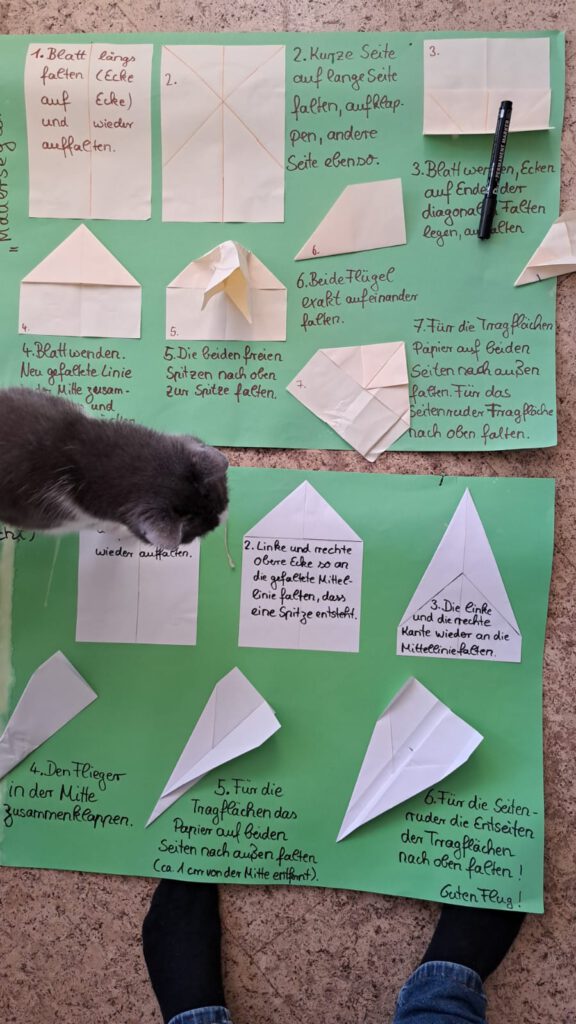 "Mauersegler"
1. Blatt längs
falten (Ecke
auf Ecke)
und wieder
auffalten.
2.
2. Kurze Seite
auf lange Seite
falten, aufklap-
pen, andere
Seite ebenso.
3.
PERMANENT MARKER
3. Blatt wenden, Ecken
auf Ende der
diagonalen Falten
legen,
4.
4. Blatt wenden.
Neu gefaltete Linie
der Mitte zusam-
und
5.
5. Die beiden freien
Spitzen nach oben
zur Spitze falten.
6.
6. Beide Flügel
exakt aufeinander
falten.
7.
7. Für die Tragflächen
Papier auf beiden
Seiten nach außen
falten. Für das
Seitenruder Tragfläche
nach oben falten.
wieder auffalten.
2. Linke und rechte
obere Ecke so an
die gefaltete Mittel-
linie falten, dass
eine Spitze entsteht.
3. Die linke
und die rechte
Kante wieder an die
Mittellinie falten.
4. Den Flieger
in der Mitte
zusammenklappen.
5. Für die
Tragflächen das
Papier auf beiden
Seiten nach außen falten
(ca. 1 cm von der Mitte entfernt).
6. Für die Seiten-
ruder die Entseiten
der Tragflächen
nach oben falten!
Guten Flug!